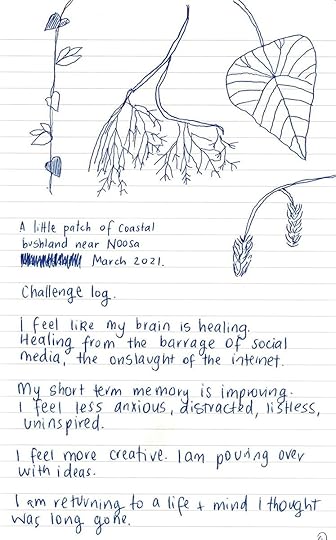 A little patch of coastal
bushland near Noosa
March 2021.
Challenge log.
I feel like my brain is healing.
Healing from the barrage of social
media, the onslaught of the internet.
My short term memory is improving.
I feel less anxious, distracted, listless,
uninspired.
I feel more creative. I am pouring over
with ideas.
I am returning to a life + mind I thought
was long gone.